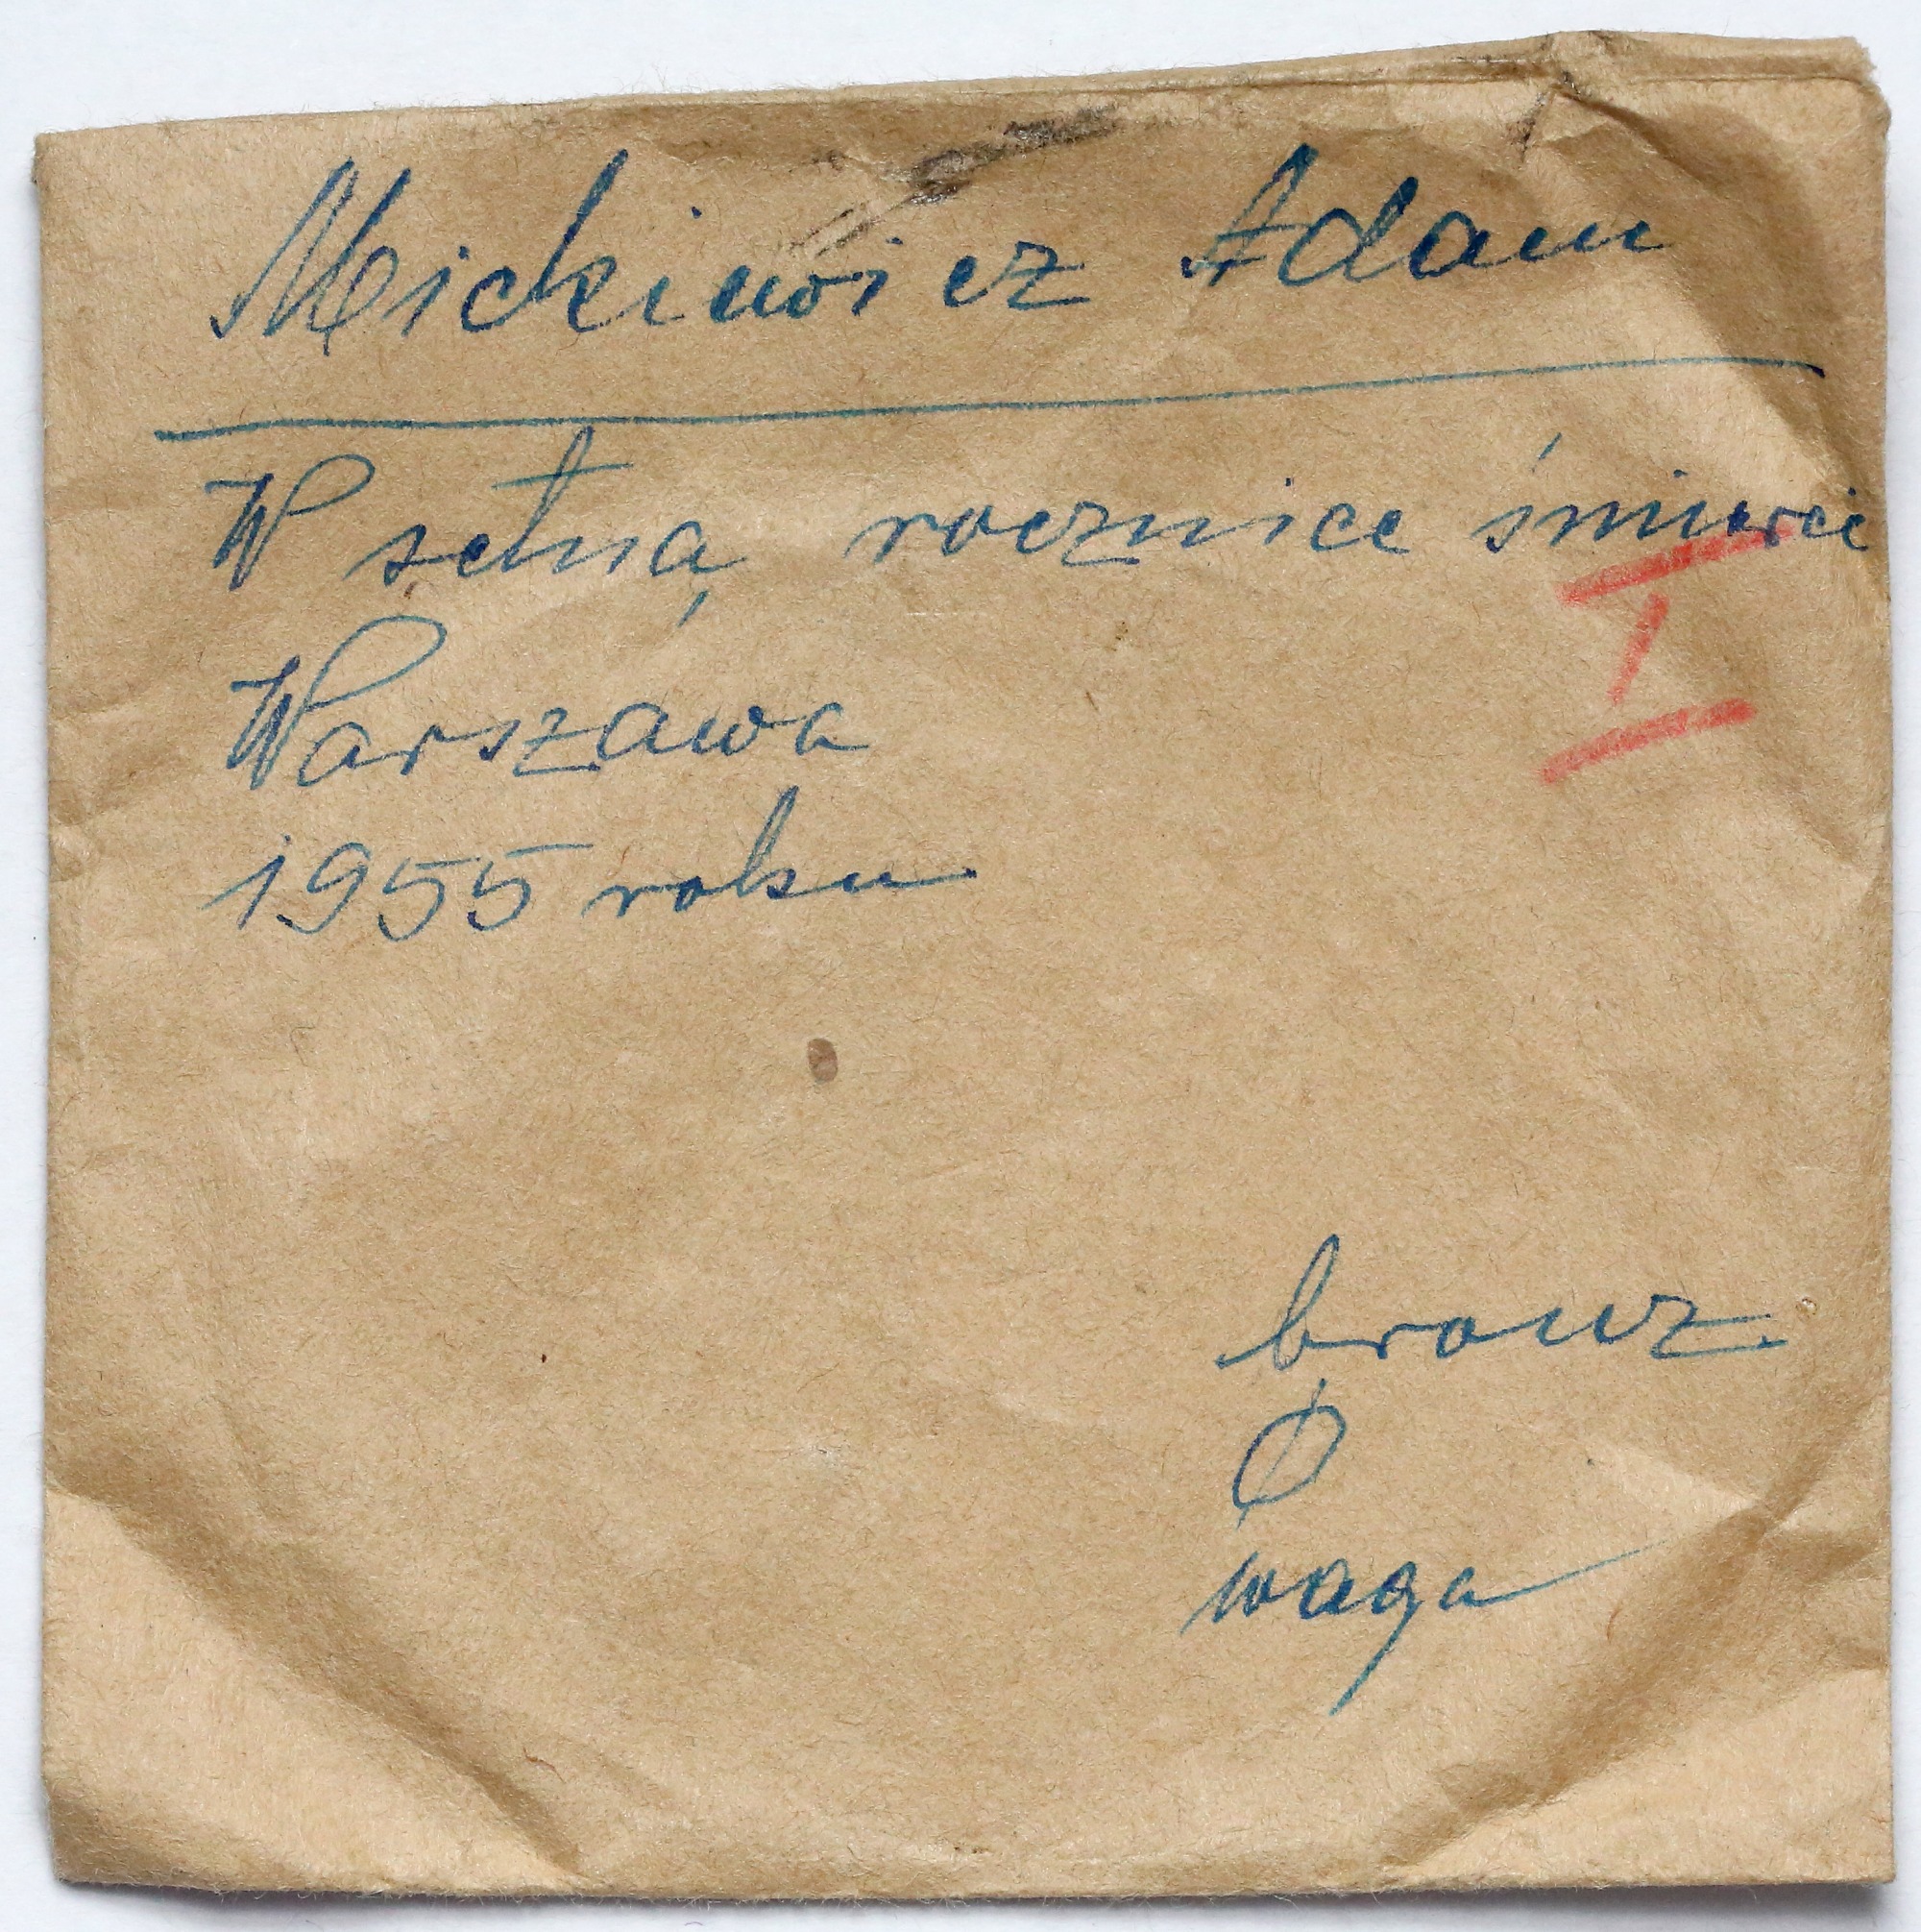 Mickiewicz Adam
W setną rocznice śmierci
I
Warszawa
1955 roku
bronz
Ø
waga